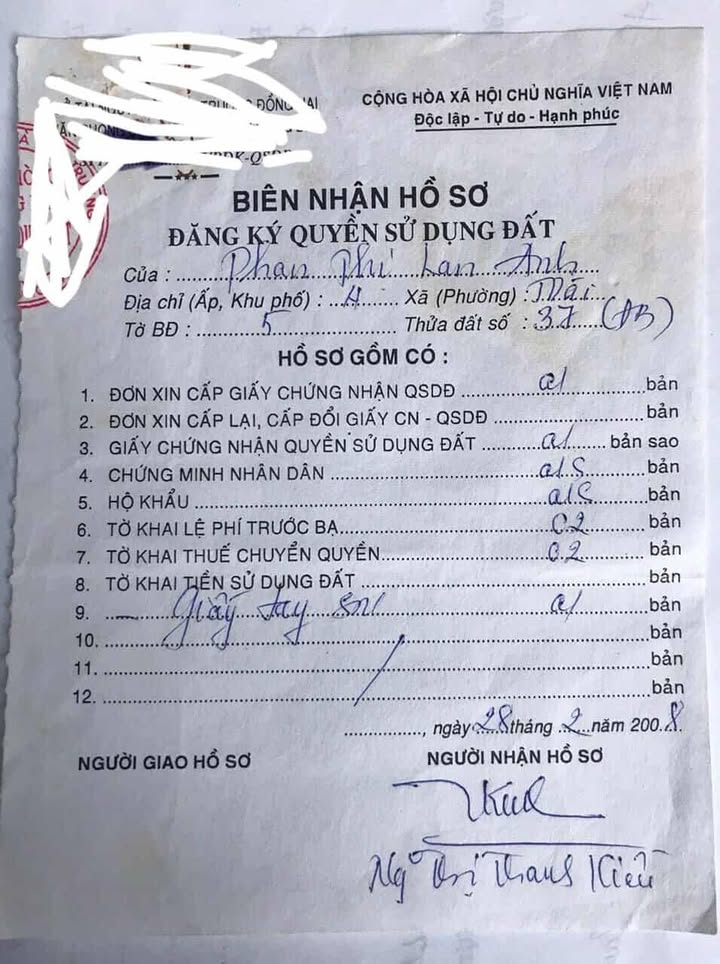 TRƯỜNG ĐỒNG NAI
CỘNG HÒA XÃ HỘI CHỦ NGHĨA VIỆT NAM
Độc lập - Tự do - Hạnh phúc
BIÊN NHẬN HỒ SƠ
ĐĂNG KÝ QUYỀN SỬ DỤNG ĐẤT
Của : Phan Phi Lan Anh
Địa chỉ (Ấp, Khu phố) : 4 Xã (Phường) :
Tờ BĐ : 5 Thửa đất số : 37
HỒ SƠ GỒM CÓ :
1. ĐƠN XIN CẤP GIẤY CHỨNG NHẬN QSDĐ 01 bản
2. ĐƠN XIN CẤP LẠI, CẤP ĐỔI GIẤY CN - QSDĐ bản
3. GIẤY CHỨNG NHẬN QUYỀN SỬ DỤNG ĐẤT 01 bản sao
4. CHỨNG MINH NHÂN DÂN 01S bản
5. HỘ KHẨU 01S bản
6. TỜ KHAI LỆ PHÍ TRƯỚC BẠ 02 bản
7. TỜ KHAI THUẾ CHUYỂN QUYỀN 02 bản
8. TỜ KHAI TIỀN SỬ DỤNG ĐẤT bản
9. Giấy tay 01 bản
10. bản
11. bản
12. bản
, ngày 28 tháng 2 năm 2008
NGƯỜI GIAO HỒ SƠ
NGƯỜI NHẬN HỒ SƠ
Thị Thanh Kiều